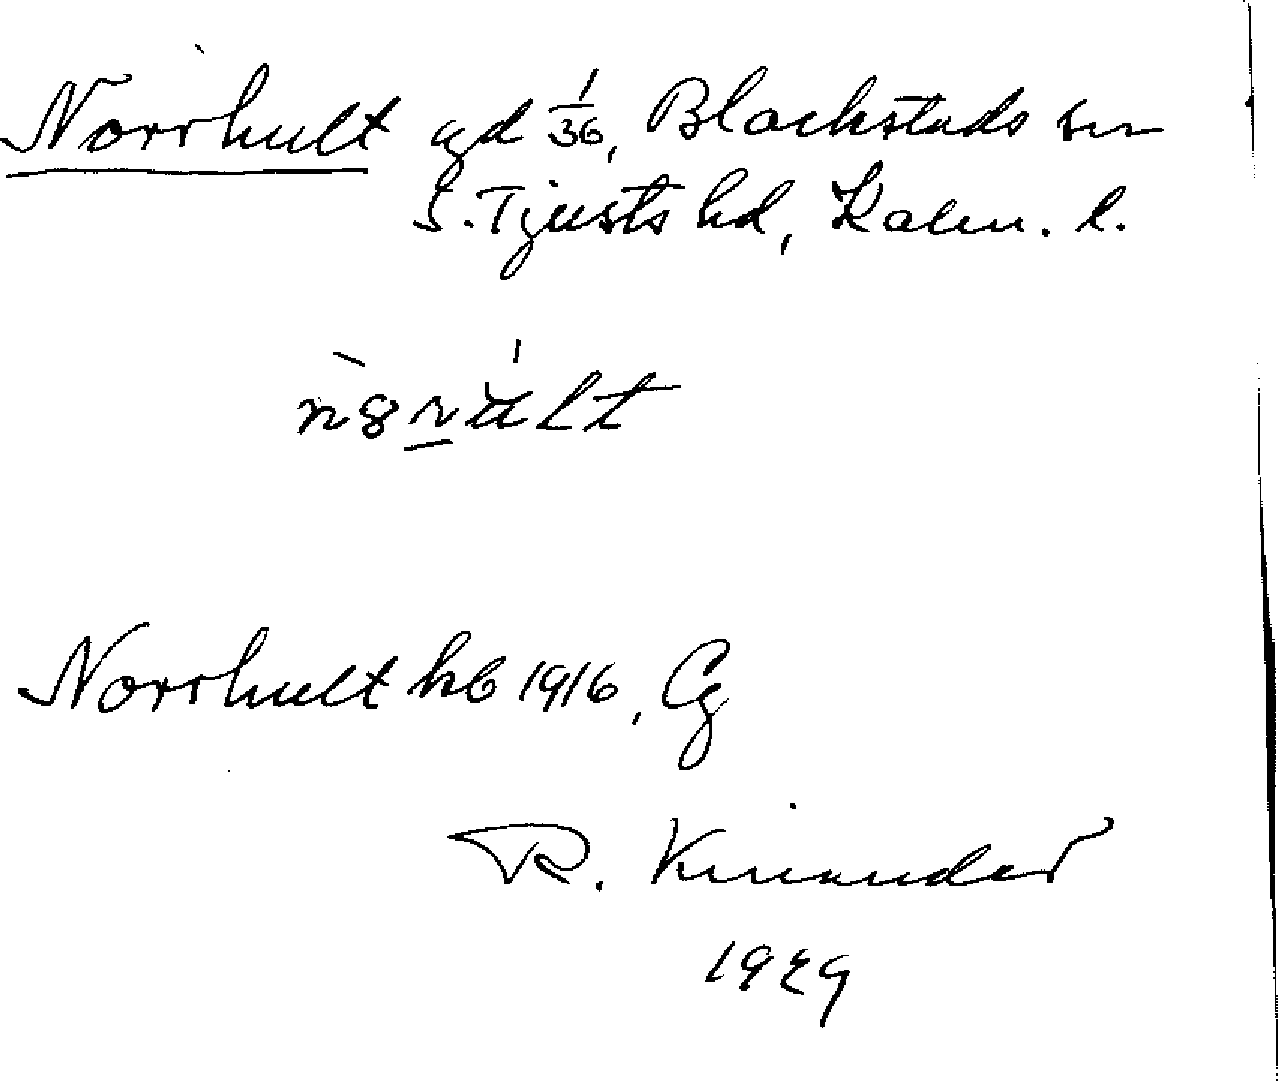 Norrhult gd 1/36, Blackstads sn
S. Tjusts hd, Kalm. l.
Norrhult kb 1916, Cg
R. Kinander
1929